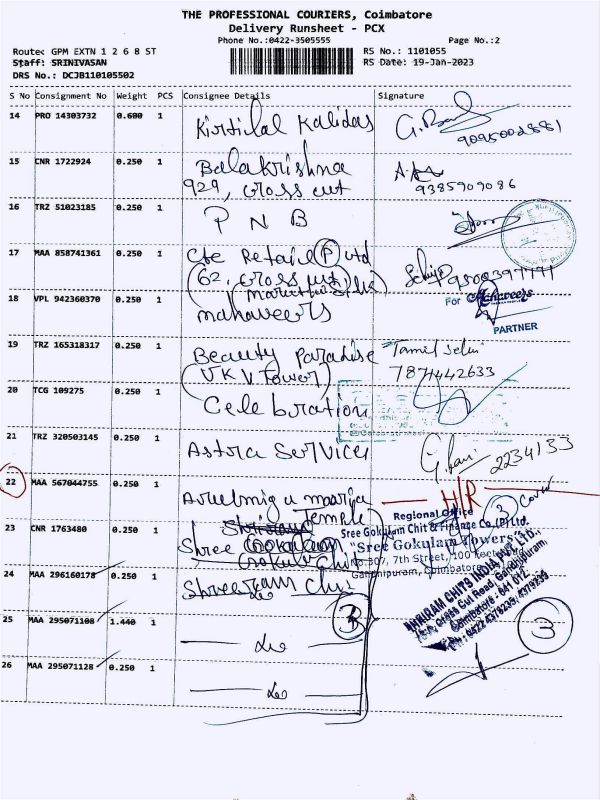 THE PROFESSIONAL COURIERS, Coimbatore
Delivery Runsheet - PCX
Phone No.:0422-3505555 Page No.:2
Route: GPM EXTN 1 2 6 8 ST RS No.: 1101055
Staff: SRINIVASAN RS Date: 19-Jan-2023
DRS No.: DCJB110105502
S No Consignment No Weight PCS Consignee Details Signature
14 PRO 14303732 0.600 1 Kirtilal Kalidas
9095002881
15 CNR 1722924 0.250 1 Balakrishna
929, cross cut 9385909086
16 TRZ 51023185 0.250 1 P N B
17 MAA 858741361 0.250 1 Retail P Ltd
62, cross cut
18 VPL 942360370 0.250 1 mahaveers
For Mahaveers
PARTNER
19 TRZ 165318317 0.250 1 Beauty Paradise Tamil Selvi
(VKV Tower) 7871442633
20 TCG 109275 0.250 1 Celebration
21 TRZ 320503145 0.250 1 Astra Services 2234133
22 MAA 567044755 0.250 1 Arulmigu
Temple H/R
3 Cover
23 CNR 1763480 0.250 1 Shree Gokulam
Gokulam Chit
Regional Office
Sree Gokulam Chit & Finance Co.(P) Ltd.
"Sree Gokulam Towers"
No 307, 7th Street, 100 Feet
Gandhipuram, Coimbatore
24 MAA 296160178 0.250 1 Shreeram Chit
SHRIRAM CHITS INDIA PVT. LTD.,
Cross Cut Road, Gandhipuram
Coimbatore - 641 012.
3
25 MAA 295071108 1.440 1
3
26 MAA 295071128 0.250 1